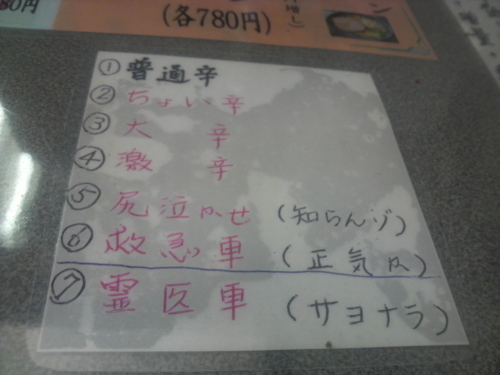 ① 普通辛
② ちょい辛
③ 大辛
④ 激辛
⑤ 尻泣かせ (知らんゾ)
⑥ 救急車 (正気カ)
⑦ 霊区車 (サヨナラ)
(各780円)
80円